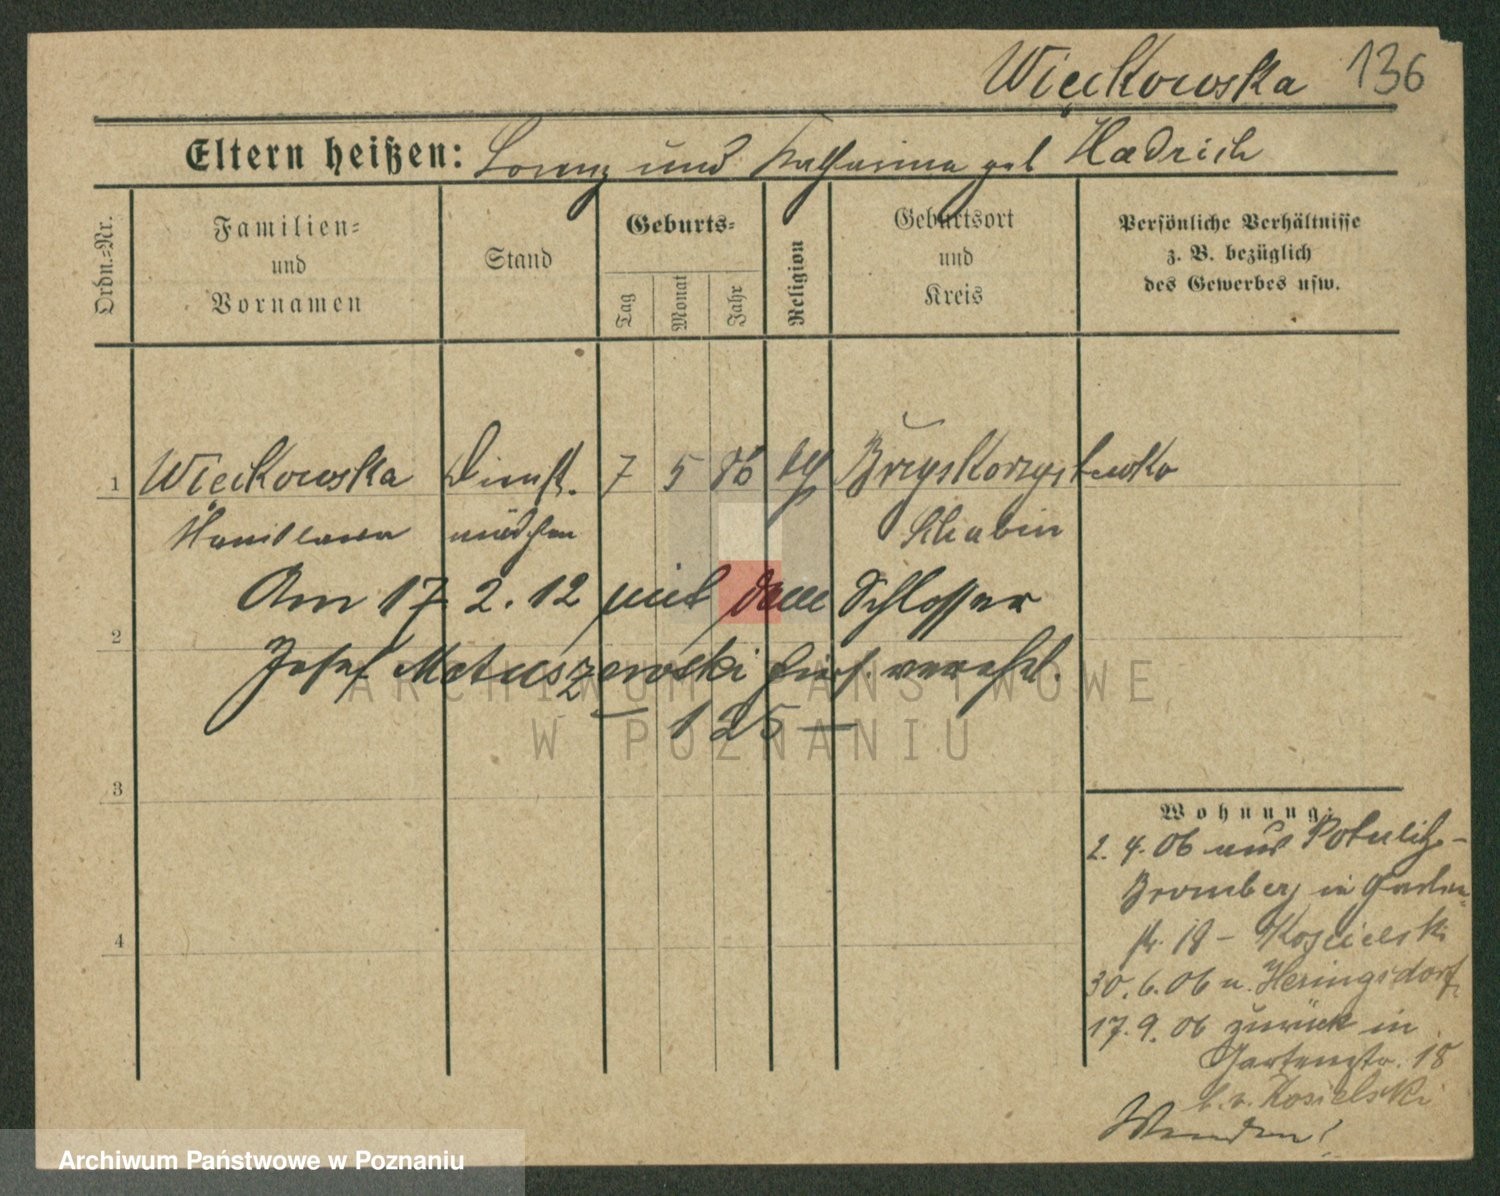 Więckowska 136
Eltern heißen: Lorenz und Katharina geb Hadrich
Ordn.=Nr.
Familien=
und
Vornamen
Stand
Geburts=
Tag
Monat
Jahr
Religion
Geburtsort
und
Kreis
Persönliche Verhältnisse
z. B. bezüglich
des Gewerbes usw.
1 Więckowska Dienst. 7 5 86 kth Brzyskorzystewko
mädchen Schubin
Am 17. 2. 12 mit dem Schlosser
2
Josef Matuszewski hier. verehel.
— 125 —
3
4
Wohnung:
2. 4. 06 aus Potulitz-
Bromberg in Garten=
str. 18 - Kościelski
30. 6. 06 n. Heringsdorf
17. 9. 06 zurück in
Gartenstr. 18
b. v. Kosielski
Wenden!
ARCHIWUM PAŃSTWOWE
W POZNANIU
Archiwum Państwowe w Poznaniu